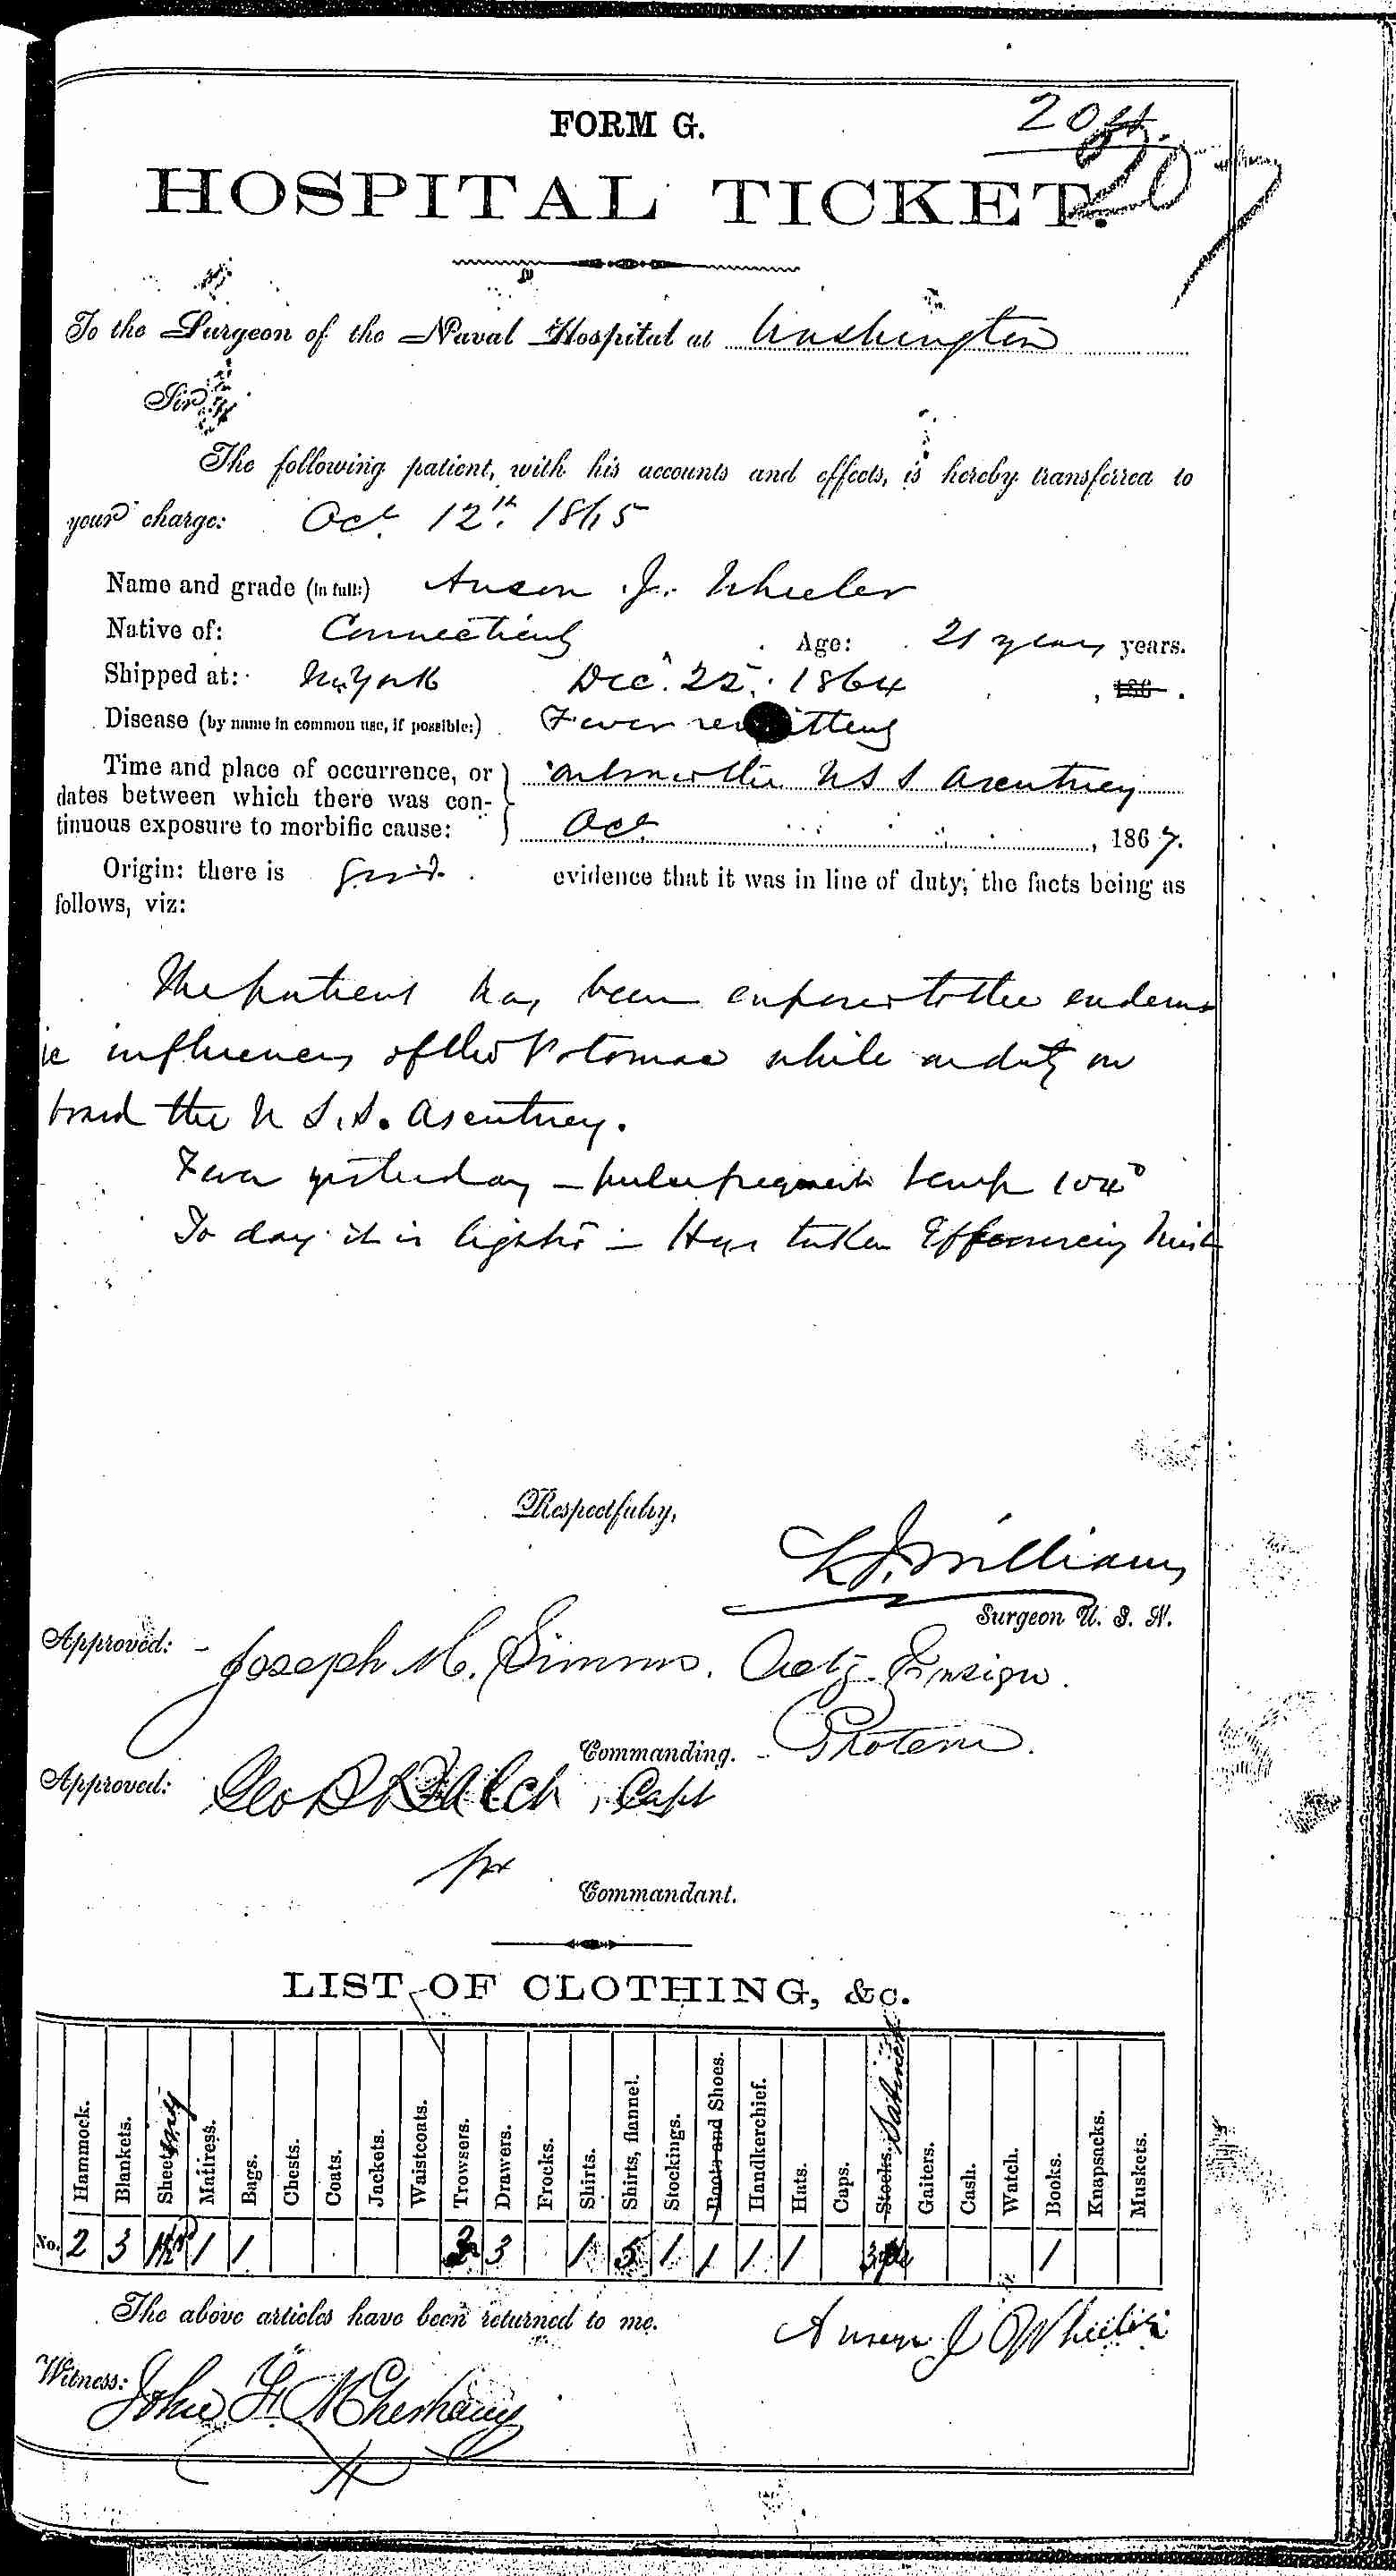 FORM G.
207
HOSPITAL TICKET.
To the Surgeon of the Naval Hospital at Washington
Sir
The following patient, with his accounts and effects, is hereby transferred to
your charge: Oct 12th. 1865
Name and grade (in full:) Anson J. Wheeler
Native of: Connecticut Age: 21 years years.
Shipped at: N. York Dec. 22. 1864 , 186 .
Disease (by name in common use, if possible:) Fever remittent
Time and place of occurrence, or
dates between which there was con-
tinuous exposure to morbific cause:
on board the U S S Ascutney
Oct , 1867.
Origin: there is good evidence that it was in line of duty; the facts being as
follows, viz:
The patient has been exposed to the endem
ic influences of the Potomac while on duty on
board the U S. S. Ascutney.
Fever yesterday – pulse frequent temp 104°
To day it is lighter – Has taken Effervescing
Respectfully,
L J. Williams
Surgeon U. S. N.
Approved: - Joseph M. Simms. Actg. Ensign.
Commanding. - Protem.
Approved: Geo B Balch, Capt
Commandant.
LIST OF CLOTHING, &c.
Hammock. Blankets. Sheet Matiress. Bags. Chests. Coats. Jackets. Waistcoats. Trowsers. Drawers. Frocks. Shirts. Shirts, flannel. Stockings. Boots and Shoes. Handkerchief. Hats. Caps. Stocks. Satinet Gaiters. Cash. Watch. Books. Knapsacks. Muskets.
No. 2 3 1 1 3 1 5 1 1 1 1 1
The above articles have been returned to me. Anson J Wheeler
Witness: John F.